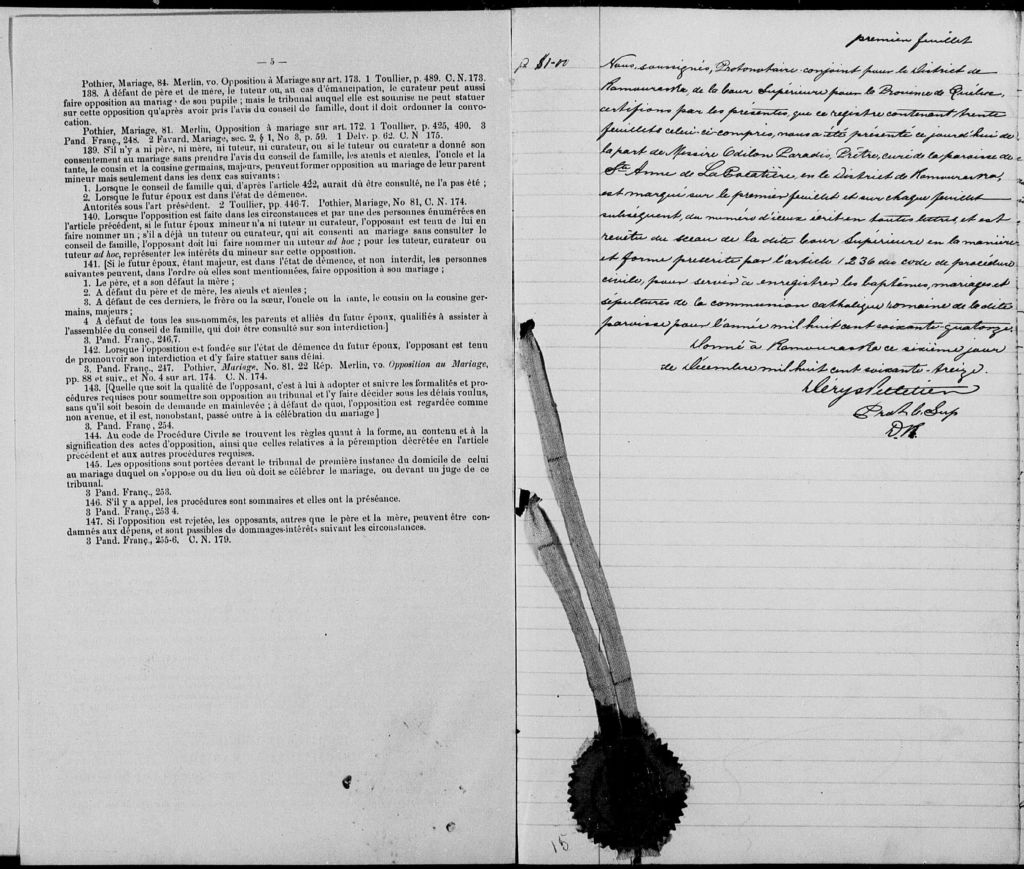 — 5 —
Pothier, Mariage, 84. Merlin, vo. Opposition à Mariage sur art. 173. 1 Toullier, p. 489. C. N. 173.
138. A défaut de père et de mère, le tuteur ou, au cas d'émancipation, le curateur peut aussi
faire opposition au mariage de son pupile ; mais le tribunal auquel elle est soumise ne peut statuer
sur cette opposition qu'après avoir pris l'avis du conseil de famille, dont il doit ordonner la convo-
cation.
Pothier, Mariage, 81. Merlin, Opposition à mariage sur art. 172. 1 Toullier, p. 425, 490. 3
Pand Franç., 248. 2 Favard. Mariage, sec. 2, § 1, No 3, p. 59. 1 Delv. p. 62. C. N 175.
139. S'il n'y a ni père, ni mère, ni tuteur, ni curateur, ou si le tuteur ou curateur a donné son
consentement au mariage sans prendre l'avis du conseil de famille, les aieuls et aieules, l'oncle et la
tante, le cousin et la cousine germains, majeurs, peuvent former opposition au mariage de leur parent
mineur mais seulement dans les deux cas suivants :
1. Lorsque le conseil de famille qui, d'après l'article 422, aurait dû être consulté, ne l'a pas été ;
2. Lorsque le futur époux est dans l'état de démence.
Autorités sous l'art présédent. 2 Toullier, pp. 446-7. Pothier, Mariage, No 81, C. N. 174.
140. Lorsque l'opposition est faite dans les circonstances et par une des personnes énumérées en
l'article précédent, si le futur époux mineur n'a ni tuteur ni curateur, l'opposant est tenu de lui en
faire nommer un ; s'il a déjà un tuteur ou curateur, qui ait consenti au mariage sans consulter le
conseil de famille, l'opposant doit lui faire nommer un tuteur ad hoc ; pour les tuteur, curateur ou
tuteur ad hoc, représenter les intérêts du mineur sur cette opposition.
141. [Si le futur époux, étant majeur, est dans l'état de démence, et non interdit, les personnes
suivantes peuvent, dans l'ordre où elles sont mentionnées, faire opposition à son mariage ;
1. Le père, et a son défaut la mère ;
2. A défaut du père et de mère, les aïeuls et aieules ;
3. A défaut de ces derniers, le frère ou la sœur, l'oncle ou la tante, le cousin ou la cousine ger-
mains, majeurs ;
4 A défaut de tous les sus-nommés, les parents et alliés du futur époux, qualifiés à assister à
l'assemblée du conseil de famille, qui doit être consulté sur son interdiction.]
3. Pand. Franç., 246,7.
142. Lorsque l'opposition est fondée sur l'état de démence du futur époux, l'opposant est tenu
de promouvoir son interdiction et d'y faire statuer sans délai.
3. Pand. Franç., 247. Pothier, Mariage, No. 81. 22 Rép. Merlin, vo. Opposition au Mariage,
pp. 88 et suiv., et No. 4 sur art. 174. C. N. 174.
143. [Quelle que soit la qualité de l'opposant, c'est à lui à adopter et suivre les formalités et pro-
cédures requises pour soumettre son opposition au tribunal et l'y faire décider sous les délais voulus,
sans qu'il soit besoin de demande en mainlevée ; à défaut de quoi, l'opposition est regardée comme
non avenue, et il est, nonobstant, passé outre à la célébration du mariage]
3. Pand. Franç , 254.
144. Au code de Procédure Civile se trouvent les règles quant à la forme, au contenu et à la
signification des actes d'opposition, ainsi que celles relatives à la péremption décrétée en l'article
précédent et aux autres procédures requises.
145. Les oppositions sont portées devant le tribunal de première instance du domicile de celui
au mariage duquel on s'oppose ou du lieu où doit se célébrer le mariage, ou devant un juge de ce
tribunal.
3 Pand. Franç., 253.
146. S'il y a appel, les procédures sont sommaires et elles ont la préséance.
3 Pand. Franç., 253 4.
147. Si l'opposition est rejetée, les opposants, autres que le père et la mère, peuvent être con-
damnés aux dépens, et sont passibles de dommages-intérêts suivant les circonstances.
3 Pand. Franç., 255-6. C. N. 179.
premier feuillet
$1-00
Nous, soussignés, Protonotaire conjoint pour le District de
Kamouraska, de la Cour Supérieure pour la Province de Québec
certifions par les présentes, que ce registre contenant trente
feuillets celui-ci compris, nous a été présenté ce jourd'hui de
la part de Messire Odilon Paradis, Prêtre, curé de la paroisse de
Ste Anne de La Pocatière, en le District de Kamouraska,
est marqué sur le premier feuillet et sur chaque feuillet
subséquent, du numéro d'iceux écrit en toutes lettres et est
revêtu du sceau de la dite Cour Supérieure en la manière
et forme prescrite par l'article 1236 du code de procédure
civile, pour servir à enregistrer les baptêmes, mariages et
sépultures de la communion catholique romaine de la dite
paroisse pour l'année mil huit cent soixante quatorze.
Donné à Kamouraska ce sixième jour
de Décembre mil huit cent soixante-treize
Déry & Pelletier
Prot. C. Sup
D. K.
15